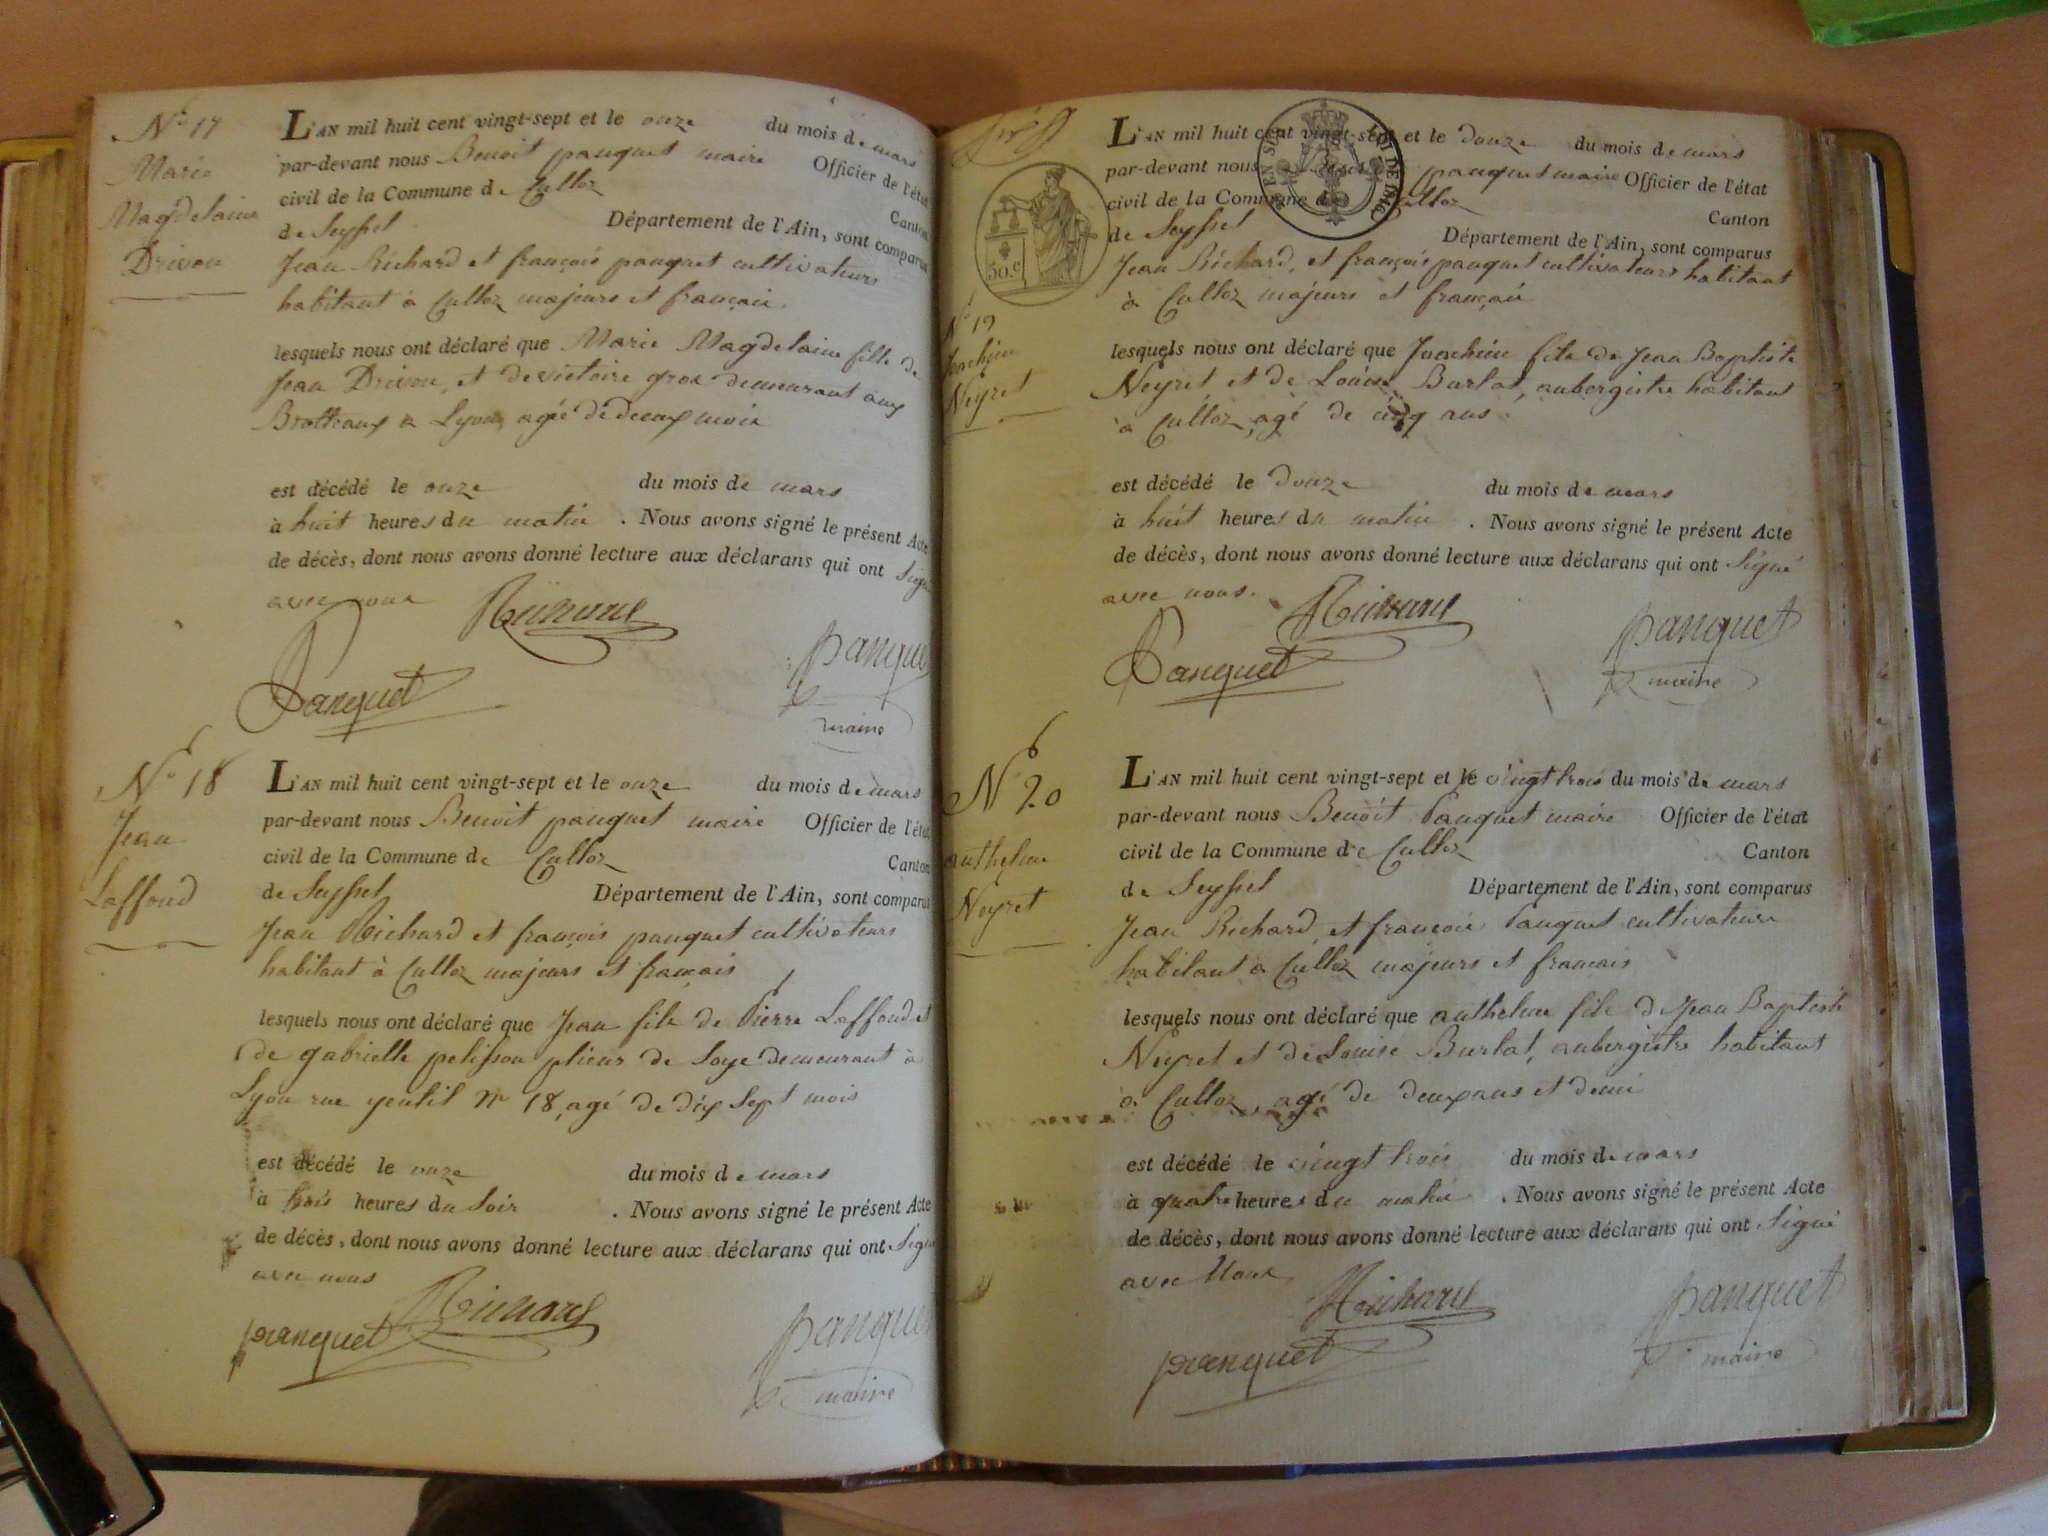 N° 17
Marie
Magdelaine
Drivon
L'AN mil huit cent vingt-sept et le onze du mois de mars
par-devant nous Benoit pauquet maire Officier de l'état
civil de la Commune de Culloz Canton
de Seyssel Département de l'Ain, sont comparus
Jean Richard et françois pauquet cultivateurs
habitant à Culloz majeurs et français
lesquels nous ont déclaré que Marie Magdelaine fille de
Jean Drivon, et de victoire gros demeurant aux
Brotteaux à Lyon, agée de deux mois
est décédé le onze du mois de mars
à huit heures du matin . Nous avons signé le présent Acte
de décès, dont nous avons donné lecture aux déclarans qui ont signé
avec nous
Richard
Pauquet
pauquet
maire
N° 18
Jean
Laffond
L'AN mil huit cent vingt-sept et le onze du mois de mars
par-devant nous Benoit pauquet maire Officier de l'état
civil de la Commune de Culloz Canton
de Seyssel Département de l'Ain, sont comparus
Jean Richard et françois pauquet cultivateurs
habitant à Culloz majeurs et français
lesquels nous ont déclaré que Jean fils de Pierre Laffond et
de gabrielle pelisson plieur de soye demeurant à
Lyon rue gentil n° 18, agé de dix sept mois
est décédé le onze du mois de mars
à trois heures du soir . Nous avons signé le présent Acte
de décès, dont nous avons donné lecture aux déclarans qui ont signé
avec nous
Richard
pauquet
pauquet
maire
50.c
N° 19
Joachim
Neyret
L'AN mil huit cent vingt-sept et le douze du mois de mars
par-devant nous pauquet maire Officier de l'état
civil de la Commune de Culloz Canton
de Seyssel Département de l'Ain, sont comparus
Jean Richard, et françois pauquet cultivateurs habitant
à Culloz majeurs et français
lesquels nous ont déclaré que Joachim fils de Jean Baptiste
Neyret et de Louise Burlat, aubergiste habitant
à Culloz, agé de cinq ans
est décédé le douze du mois de mars
à huit heures du matin . Nous avons signé le présent Acte
de décès, dont nous avons donné lecture aux déclarans qui ont signé
avec nous.
Richard
Pauquet
pauquet
maire
N° 20
anthelme
Neyret
L'AN mil huit cent vingt-sept et le vingt trois du mois de mars
par-devant nous Benoit Pauquet maire Officier de l'état
civil de la Commune de Culloz Canton
de Seyssel Département de l'Ain, sont comparus
Jean Richard, et françois Pauquet cultivateurs
habitant à Culloz majeurs et français
lesquels nous ont déclaré que anthelme fils de Jean Baptiste
Neyret et de Louise Burlat, aubergiste habitant
à Culloz, agé de deux ans et demi
est décédé le vingt trois du mois de mars
à quatre heures du matin . Nous avons signé le présent Acte
de décès, dont nous avons donné lecture aux déclarans qui ont signé
avec Nous
Richard
pauquet
pauquet
maire